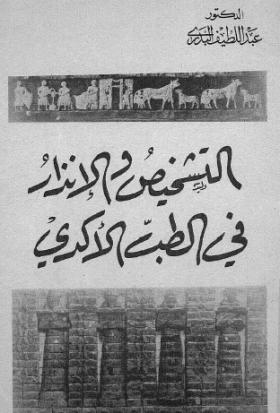 الدكتور
عبد اللطيف البدري
التشخيص والإنذار
في الطب الأكدي